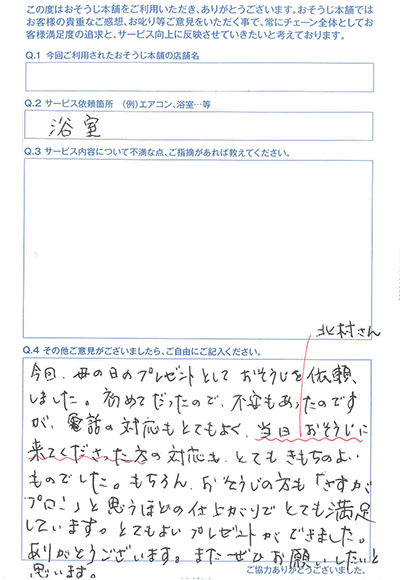 この度はおそうじ本舗をご利用いただき、ありがとうございます。おそうじ本舗では
お客様の貴重なご感想、お叱り等ご意見をいただく事で、常にチェーン全体としてお
客様満足度の追求と、サービス向上に反映させていきたいと考えております。
Q.1 今回ご利用されたおそうじ本舗の店舗名
Q.2 サービス依頼箇所 (例)エアコン、浴室…等
浴室
Q.3 サービス内容について不満な点、ご指摘があれば教えてください。
北村さん
Q.4 その他ご意見がございましたら、ご自由にご記入ください。
今回、母の日のプレゼントとして おそうじを依頼
しました。初めてだったので、不安もあったのです
が、電話の対応もとてもよく、当日おそうじに
来てくださった方の対応も、とてもきもちのよい
ものでした。もちろん、おそうじの方も「さすが
プロ!」と思うほどの仕上がりでとても満足
しています。とてもよいプレゼントができました。
ありがとうございます。またぜひお願いしたいと
思います。
ご協力ありがとうございました。